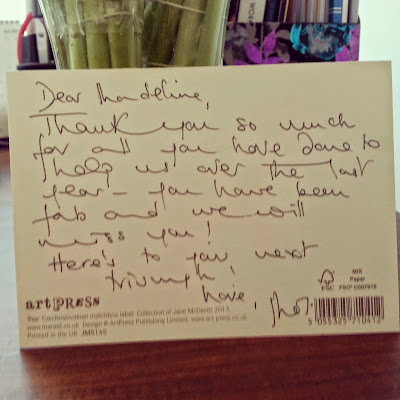 Dear Madeline,
Thank you so much
for all you have done to
help us over the last
year - you have been
fab and we will
miss you!
Here's to your next
triumph!
love,
art PRESS
Top: Czechoslovakian matchbox label. Collection of Jane McDevitt 2013.
www.maraid.co.uk Design © ArtPress Publishing Limited, www.art-press.co.uk
Printed in the UK JM5145
FSC
MIX
Paper
FSC® C007918
5 055325 710412